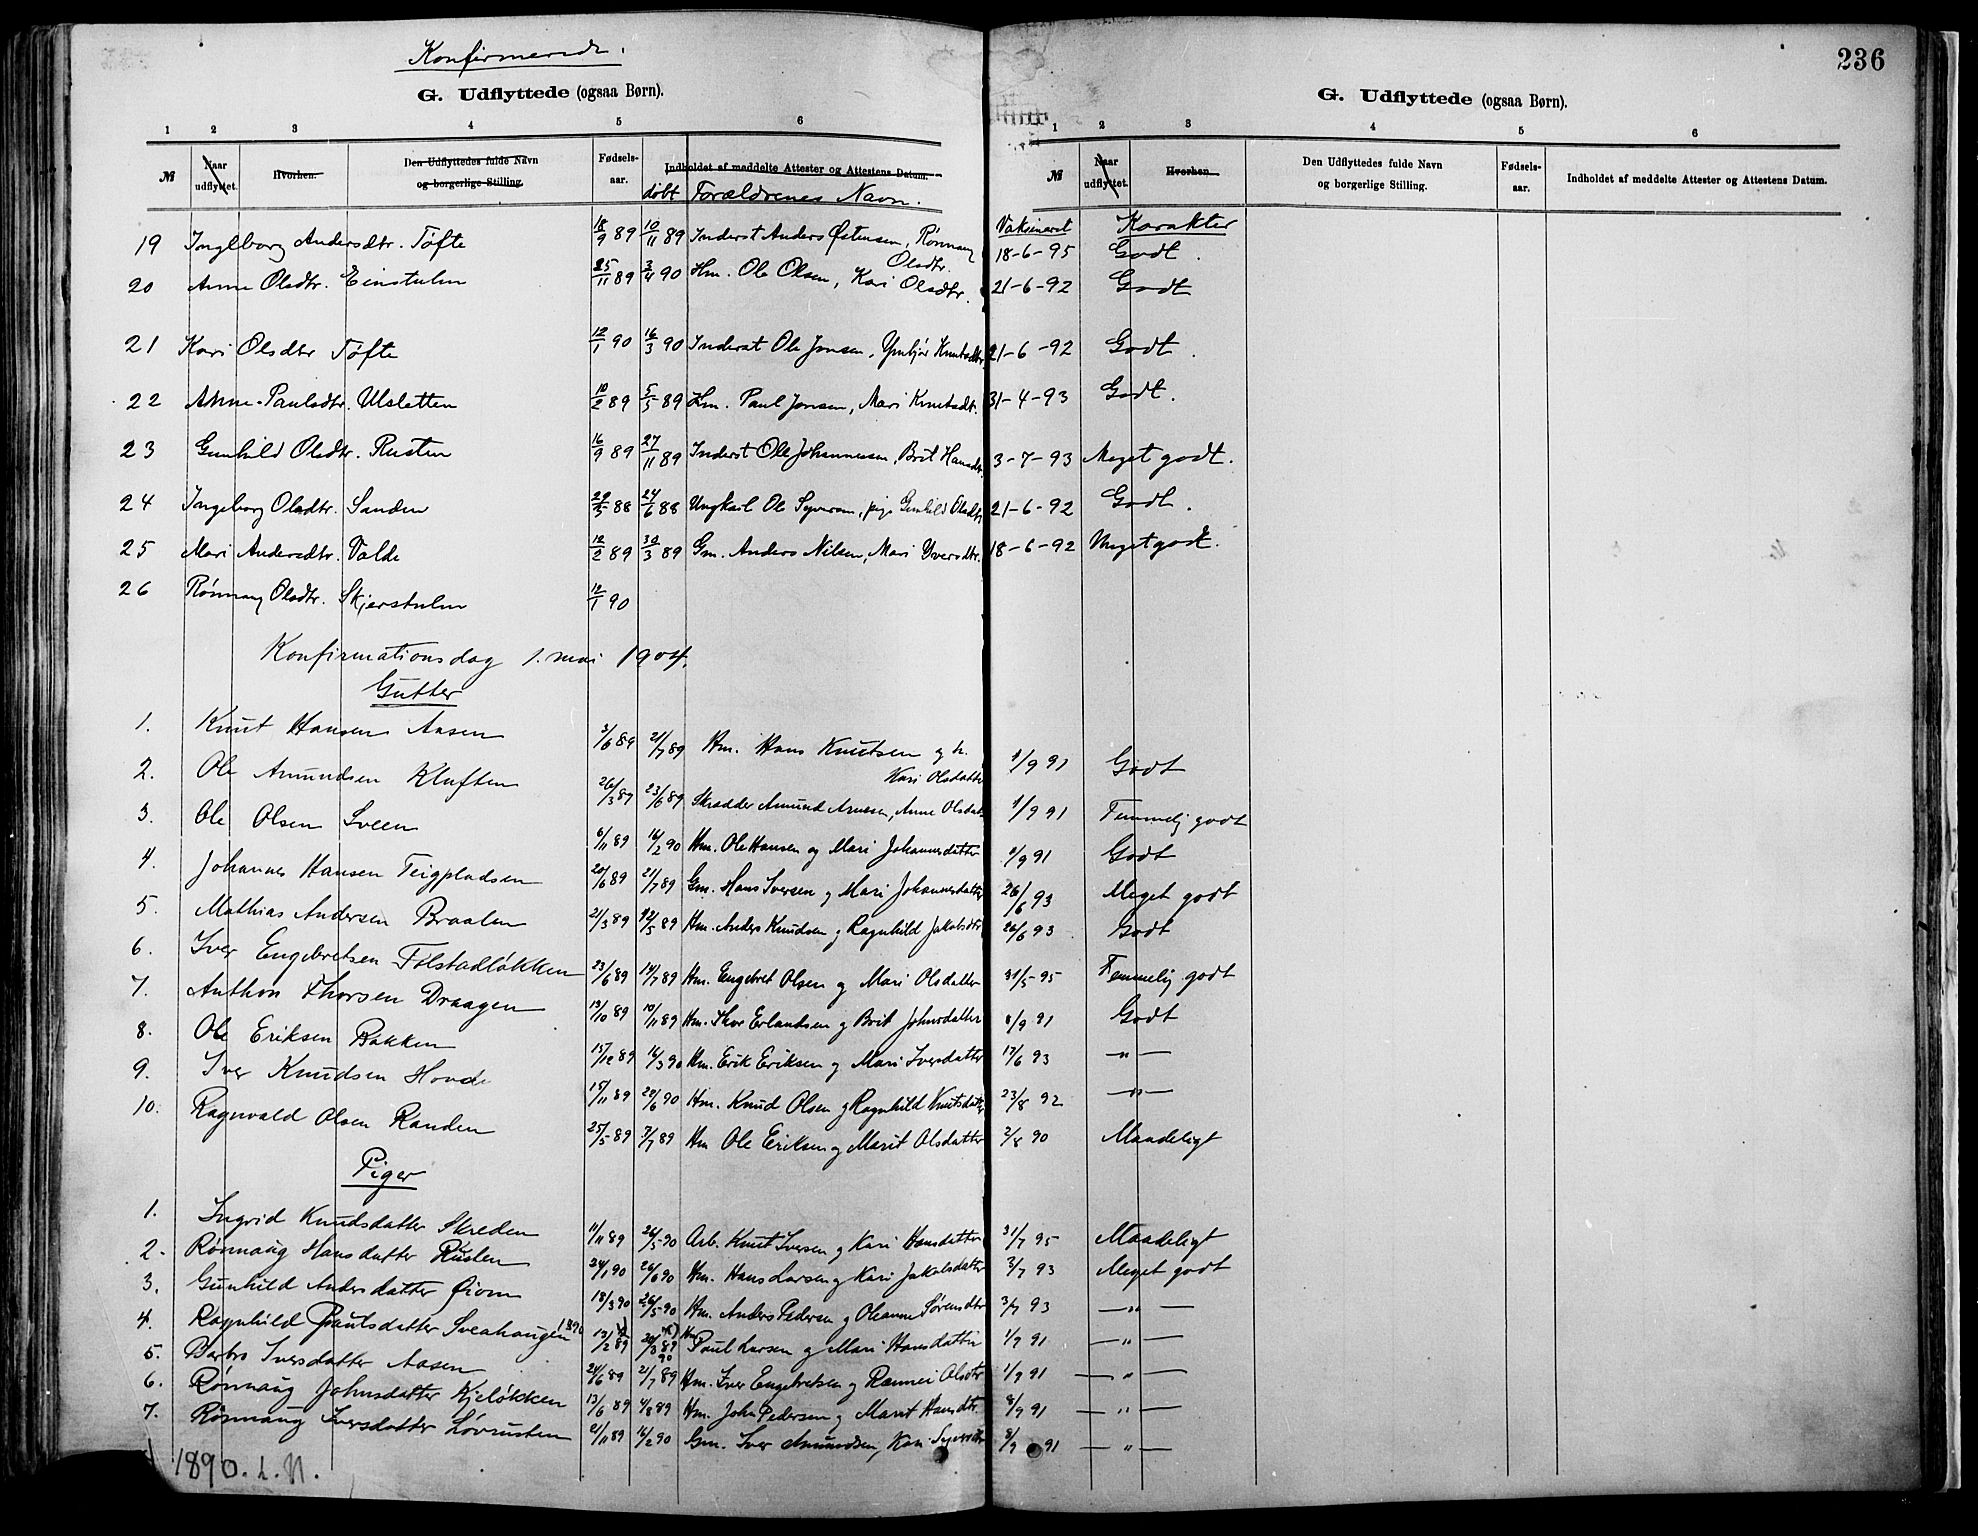 Konfirmerede.
G. Udflyttede (ogsaa Børn).
1 2 3 4 5 6
№ Naar udflyttet. Hvorhen. Den Udflyttedes fulde Navn og borgerlige Stilling. Fødsels-aar. Indholdet af meddelte Attester og Attestens Datum.
døbt Forældrenes Navn.
236
G. Udflyttede (ogsaa Børn).
1 2 3 4 5 6
№ Naar udflyttet. Hvorhen. Den Udflyttedes fulde Navn og borgerlige Stilling. Fødsels-aar. Indholdet af meddelte Attester og Attestens Datum.
Vaksineret Karakter
19 Ingeborg Andersdtr. Tofte 18/9 89 10/11 89 Inderst Anders Østensen, Rønnaug Olsdtr. 18-6-95 Godt.
20 Anne Olsdtr. Einstulen 25/11 89 3/4 90 Hm. Ole Olsen, Kari Olsdtr. 21-6-92 Godt
21 Kari Olsdtr Tofte 12/1 90 16/3 90 Inderst Ole Jonsen, Knutsdtr 21-6-92 Godt.
22 Anne Paulsdtr. Ulsletten 10/2 89 5/5 89 Hm. Paul Jonsen, Mari Knutsdt. 31-4-93 Godt.
23 Gunhild Olsdtr. Rusten 16/9 89 27/11 89 Inderst Ole Johannessen, Brit Hansdtr. 3-7-93 Meget godt.
24 Ingeborg Olsdtr. Sanden 29/5 88 24/6 88 Ungkarl Ole Syversen, pige Gunhild Olsdtr 21-6-92 Godt.
25 Mari Andersdtr. Valde 12/2 89 30/3 89 Gm. Anders Nilsen, Mari Iversdtr. 18-6-92 Meget godt.
26 Rønnaug Olsdtr. Skjerstulen 12/1 90
Konfirmationsdag 1. mai 1904.
Gutter
1. Knut Hansen Aasen 3/6 89 21/7 89 Hm. Hans Knutsen og h. Kari Olsdatter 1/9 91 Godt
2. Ole Amundsen Kluften 26/3 89 23/6 89 Skrædder Amund Arnesen, Anne Olsdatt 1/9 91 Temmelig godt
3. Ole Olsen Sveen 6/11 89 16/2 90 Hm. Ole Hansen og Mari Johannesdatter 1/9 91 Godt
4. Johannes Hansen Teigpladsen 20/6 89 21/7 89 Gm. Hans Iversen og Mari Johannesdatter 26/6 93 Meget godt
5. Mathias Andersen Braalen 21/3 89 12/5 89 Hm. Anders Knudsen og Ragnhild Jakobsdtr 26/6 93 Godt
6. Iver Engebretsen Tolstadløkken 23/6 89 14/7 89 Hm. Engebret Olsen og Mari Olsdatter 31/5-95 Temmelig godt
7. Anthon Thorsen Draagen 13/10 89 10/11 89 Hm. Thor Erlandsen og Brit Johnsdatter 8/9 91 Godt
8. Ole Eriksen Bakken 15/12 89 16/3 90 Hm. Erik Eriksen og Mari Iversdatter 17/6 93 —„—
9. Iver Knudsen Hovde 15/11 89 29/6 90 Hm. Knud Olsen og Ragnhild Knutsdatter 23/8 92 —„—
10. Ragnvald Olsen Randen 25/5 89 7/7 89 Hm Ole Eriksen og Marit Olsdatter 2/8 90 Maadeligt
Piger
1. Ingrid Knudsdatter Skreden 11/11 89 26/5-90 Arb. Knut Iversen og Kari Hansdatter 31/7 95 Maadeligt
2. Rønnaug Hansdatter Ruslen 24/1 90 26/6 90 Hm. Hans Larsen og Kari Jakobsdatter 3/7 93 Meget godt
3. Gunhild Andersdatter Øiom 18/3 90 26/5-90 Hm. Anders Pedersen og Oleanne Sørensdtr 3/7 93 —„—
4. Ragnhild Paulsdatter Sveahaugen 1890 13/2 89 30/3 89 90 Hm Paul Larsen og Mari Hansdatter 1/9 91 —„—
5. Barbro Iversdatter Aasen 24/6 89 21/7 89 Hm. Iver Engebretsen og Rannei Olsdtr 1/9 91 —„—
6. Rønnaug Johnsdatter Kjeløkken 13/6 89 4/8 89 Hm. John Pedersen og Marit Hansdtr. 8/9 91 —„—
7. Rønnaug Iversdatter Løvrusten 21/11 89 16/2 90 Gm. Iver Amundsen, Kari Syversdtr 8/9 91 —„—
1890. L. N.